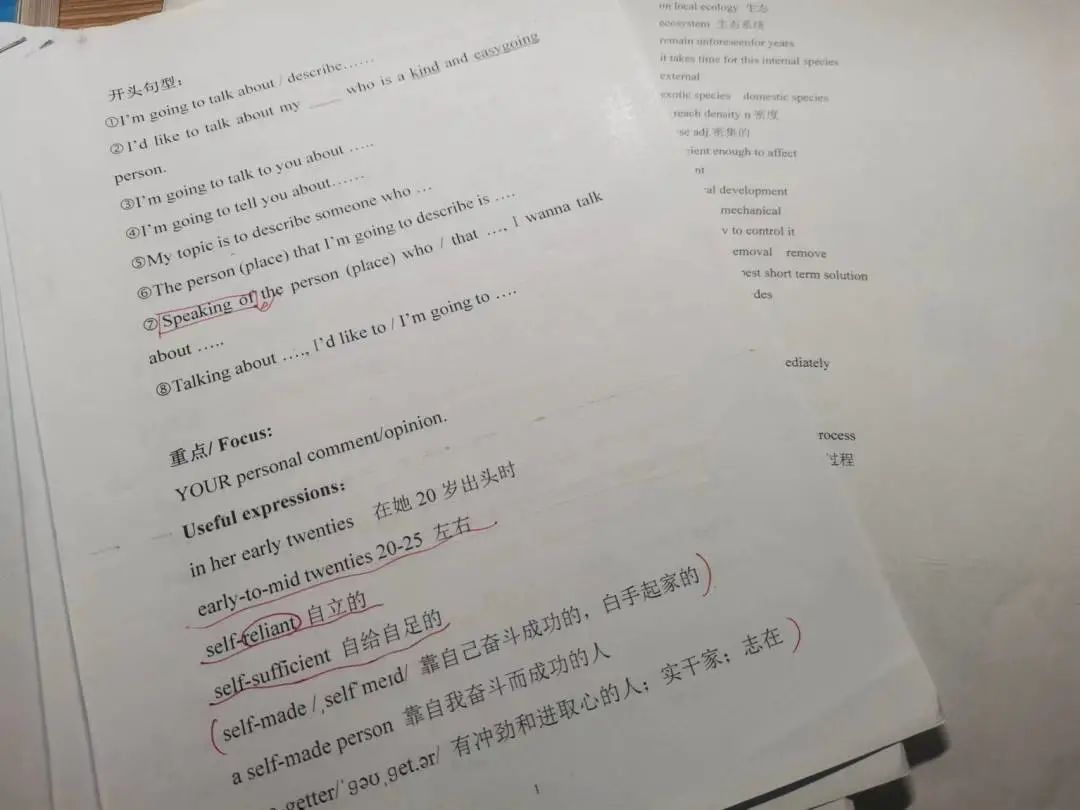 开头句型：
①I'm going to talk about / describe……
②I'd like to talk about my ____ who is a kind and easygoing
person.
③I'm going to talk to you about …..
④I'm going to tell you about……
⑤My topic is to describe someone who …
⑥The person (place) that I'm going to describe is ….
⑦Speaking of the person (place) who / that …, I wanna talk
about …..
⑧Talking about …., I'd like to / I'm going to ….
重点/ Focus:
YOUR personal comment/opinion.
Useful expressions:
in her early twenties 在她 20 岁出头时
early-to-mid twenties 20-25 左右
self-reliant 自立的
self-sufficient 自给自足的
(self-made /ˌselfˈmeɪd/ 靠自己奋斗成功的，白手起家的)
a self-made person 靠自我奋斗而成功的人
getter/ˈɡəʊˌɡet.ər/ 有冲劲和进取心的人；实干家；志在)
1
on local ecology 生态
ecosystem 生态系统
remain unforeseenfor years
it takes time for this internal species
external
exotic species domestic species
reach density n 密度
se adj.密集的
ient enough to affect
nt
al development
mechanical
to control it
emoval remove
est short term solution
des
ediately
rocess
过程